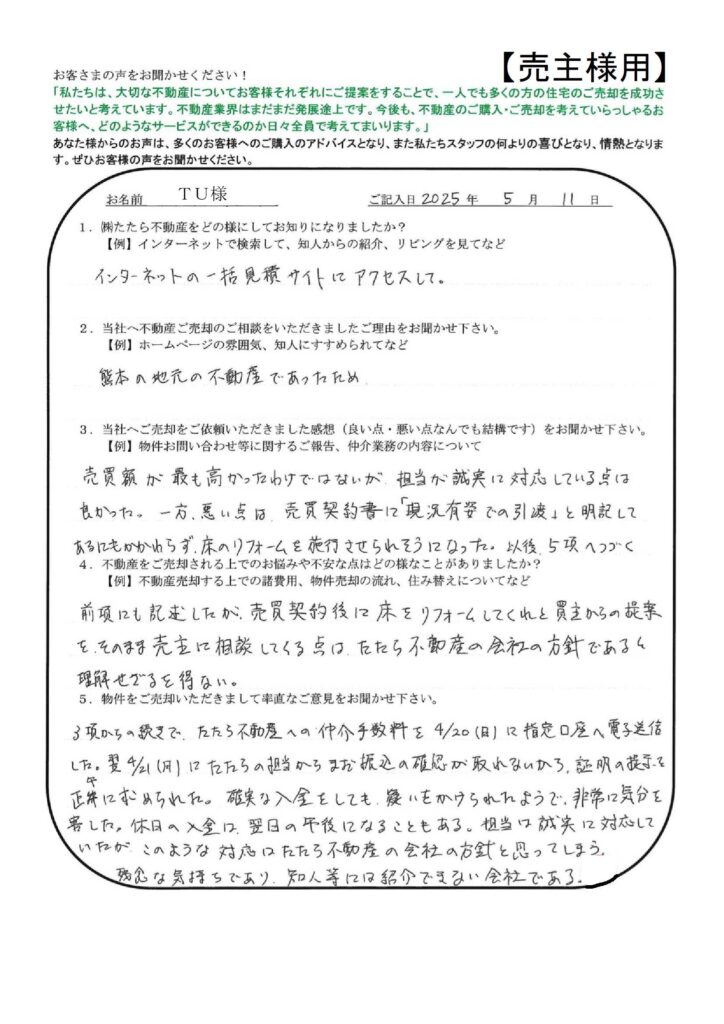 【売主様用】
お客さまの声をお聞かせください！
「私たちは、大切な不動産についてお客様それぞれにご提案をすることで、一人でも多くの方の住宅のご売却を成功さ
せたいと考えています。不動産業界はまだまだ発展途上です。今後も、不動産のご購入・ご売却を考えていらっしゃるお
客様へ、どのようなサービスができるのか日々全員で考えてまいります。」
あなた様からのお声は、多くのお客様へのご購入のアドバイスとなり、また私たちスタッフの何よりの喜びとなり、情熱となりま
す。ぜひお客様の声をお聞かせください。
お名前 TU様 ご記入日 2025 年 5 月 11 日
1．㈱たたら不動産をどの様にしてお知りになりましたか？
【例】インターネットで検索して、知人からの紹介、リビングを見てなど
インターネットの一括見積サイトにアクセスして。
2．当社へ不動産ご売却のご相談をいただきましたご理由をお聞かせ下さい。
【例】ホームページの雰囲気、知人にすすめられてなど
熊本の地元の不動産であったため
3．当社へご売却をご依頼いただきました感想（良い点・悪い点なんでも結構です）をお聞かせ下さい。
【例】物件お問い合わせ等に関するご報告、仲介業務の内容について
売買額が最も高かったわけではないが、担当が誠実に対応している点は
良かった。一方、悪い点は、売買契約書に「現況有姿での引渡」と明記して
あるにもかかわらず、床のリフォームを施行させられそうになった。以後、5項へつづく
4．不動産をご売却される上でのお悩みや不安な点はどの様なことがありましたか？
【例】不動産売却する上での諸費用、物件売却の流れ、住み替えについてなど
前項にも記述したが、売買契約後に床をリフォームしてくれと買主からの提案
を、そのまま売主に相談してくる点は、たたら不動産の会社の方針であると
理解せざるを得ない。
5．物件をご売却いただきまして率直なご意見をお聞かせ下さい。
3項からの続きで、たたら不動産への仲介手数料を4/20(日)に指定口座へ電子送信
した。翌4/21(月)にたたらの担当からまだ振込の確認が取れないから、証明の提示を
正午に求められた。確実な入金をしても、疑いをかけられたようで、非常に気分を
害した。休日の入金は、翌日の午後になることもある。担当は誠実に対応して
いたが、このような対応はたたら不動産の会社の方針と思ってしまう。
残念な気持ちであり、知人等には紹介できない会社である。